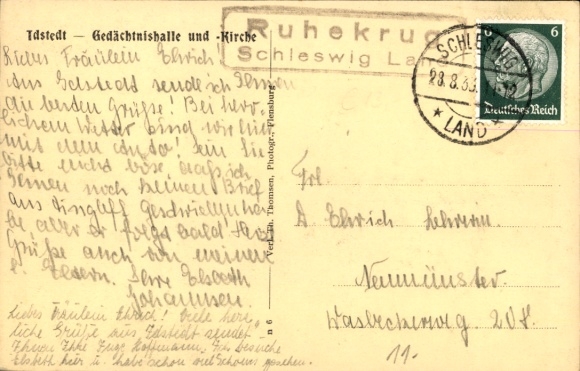 Idstedt — Gedächtnishalle und -Kirche
Ruhekrug
Schleswig Land
SCHLESWIG
28.8.39.
* LAND *
6
Deutsches Reich
Liebes Fräulein Ehrich!
Aus Idstedt sende ich Ihnen
die besten Grüße! Bei herr-
lichem Wetter sind wir hier
mit dem Auto! Sein Sie
bitte nicht böse daß ich
Ihnen noch keinen Brief
aus geschrieben ha-
be, aber er folgt bald. Herzl.
Grüße auch von meinen
l. Eltern. Ihre Elsbeth
Johannsen.
Liebes Fräulein Ehrich! Viele herz-
liche Grüße aus Idstedt sendet
Ihnen Ihre Inge Hoffmann. Ich besuche
Elsbeth hier u. habe schon viel Schönes gesehen.
n 6 Verl. Th. Thomsen, Photogr., Flensburg
Frl.
A. Ehrich Lehrerin
Neumünster
Wasbeckerweg 20 II.
11.